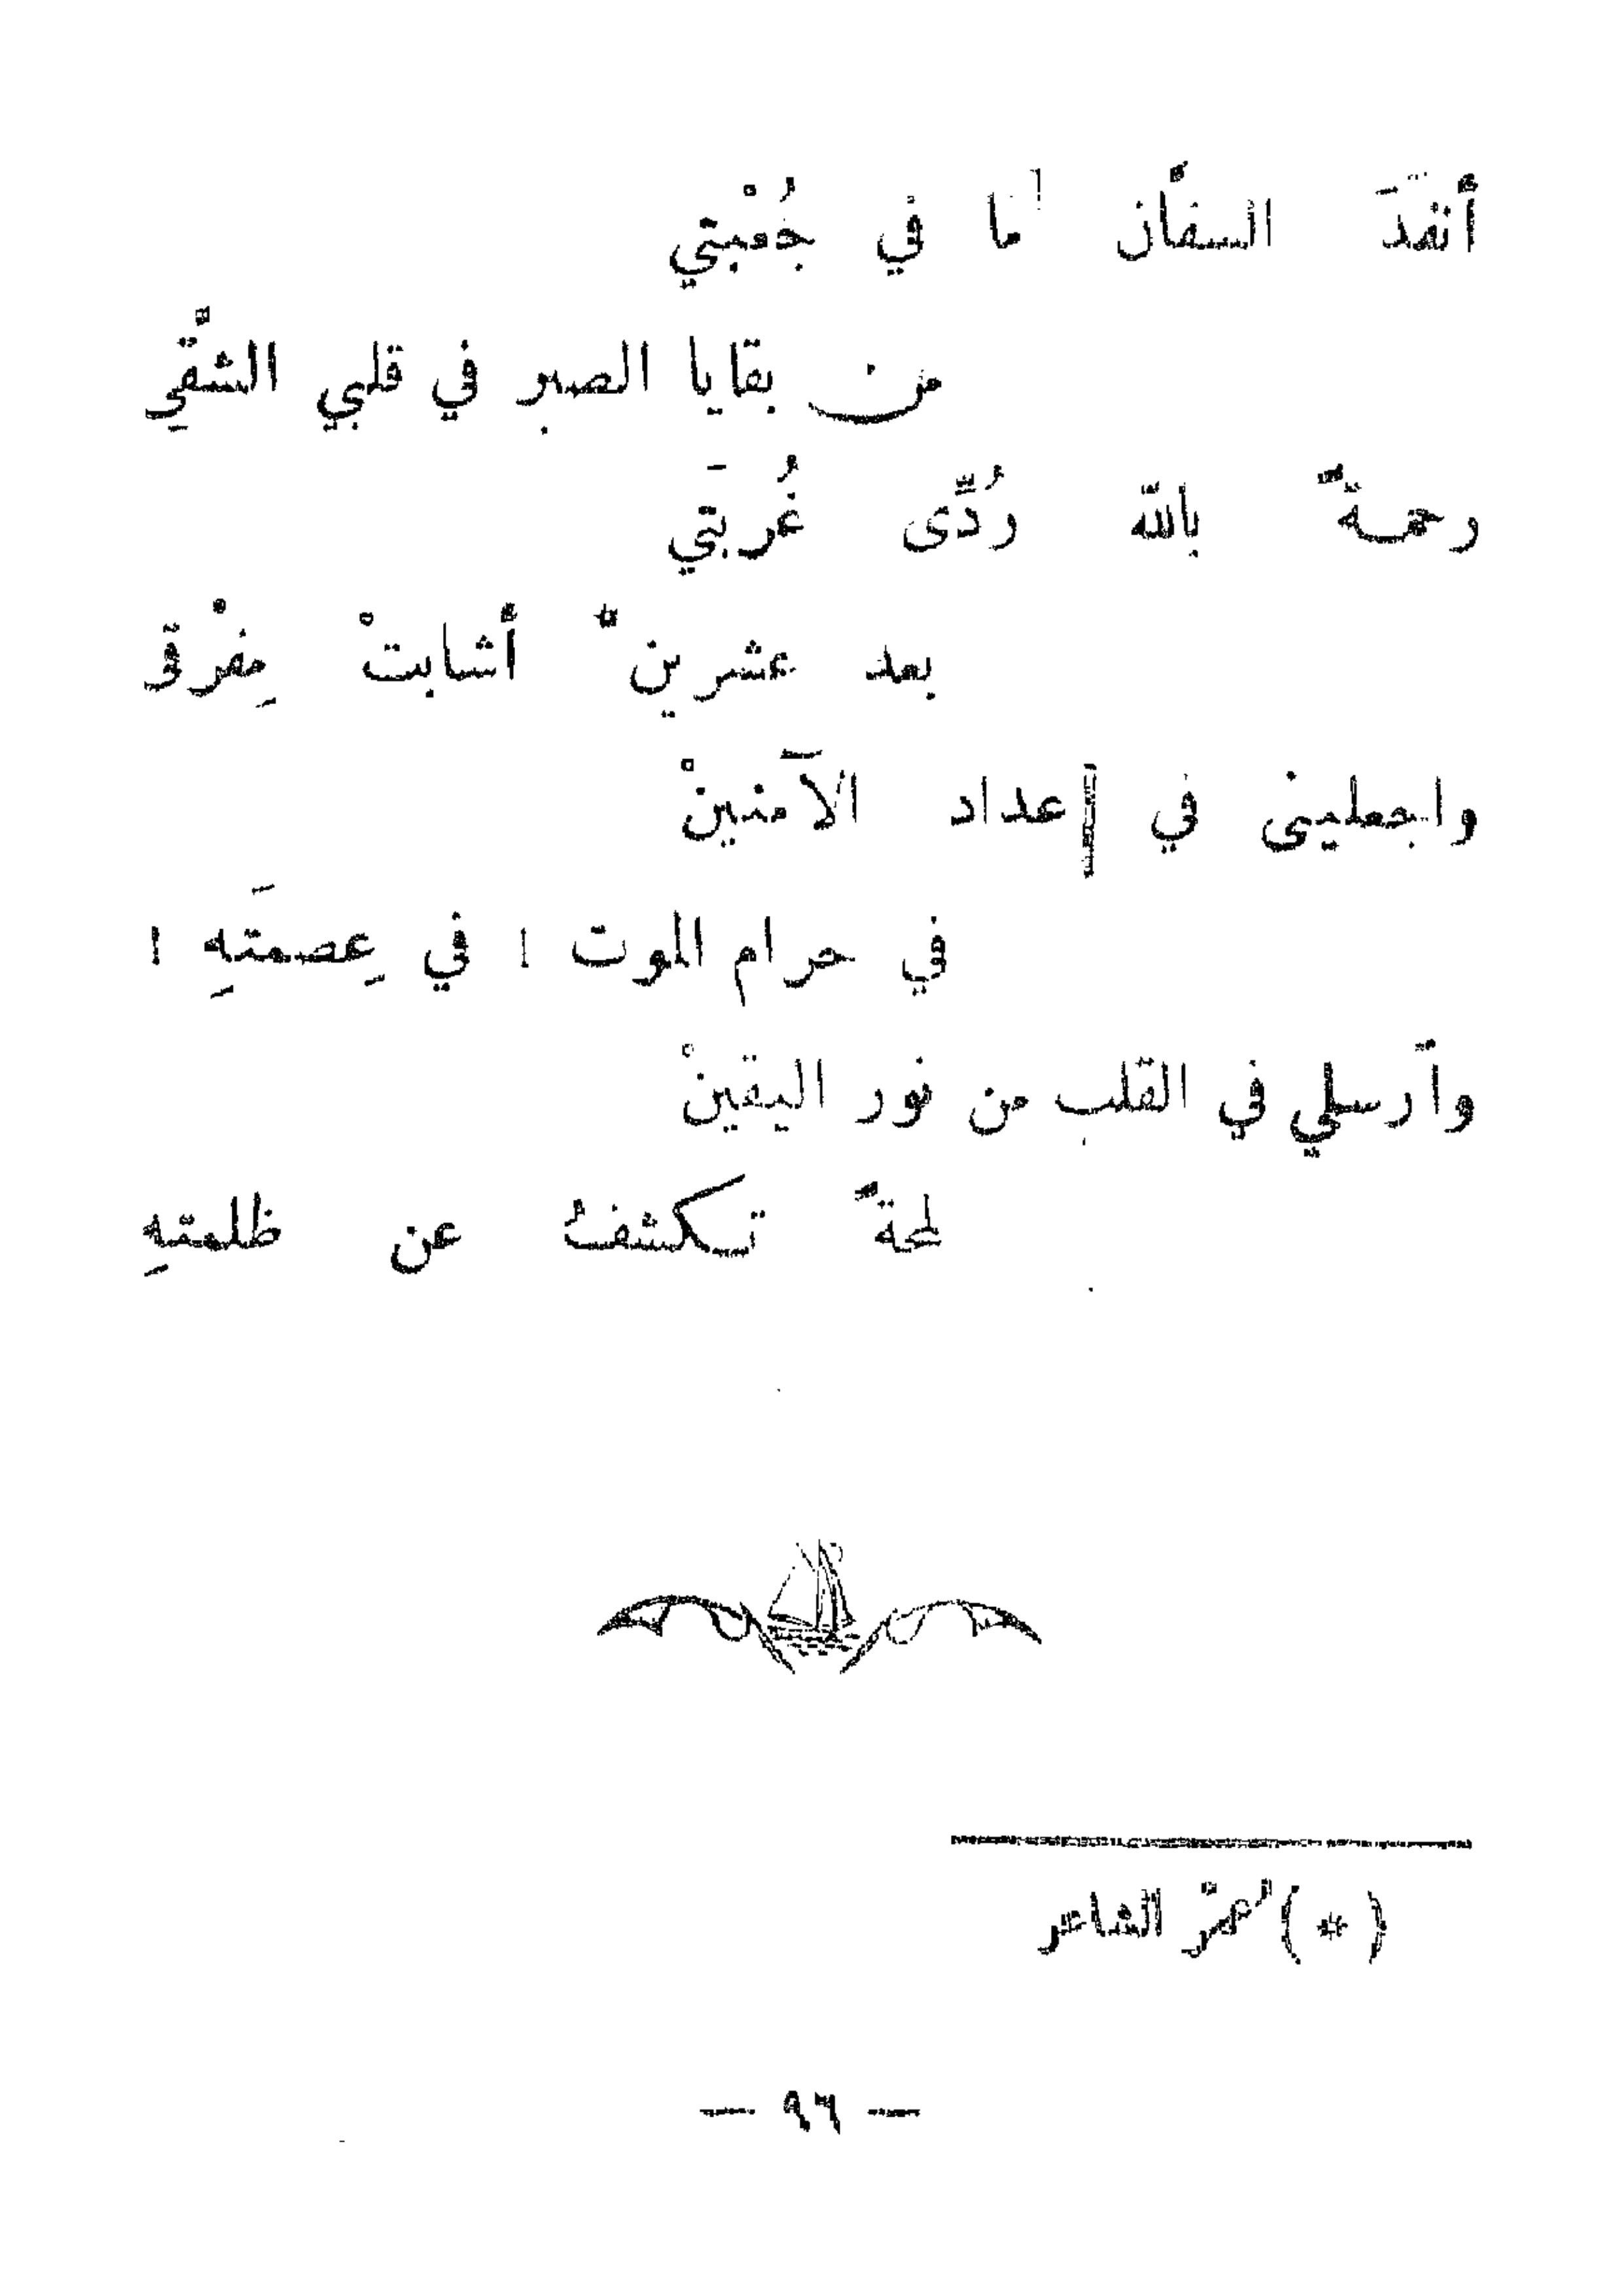 أنفدَ السفَّان ما في جُعْبتي
من بقايا الصبر في قلبي الشقْيِ
رحمةً بالله رُدِّى غُربَتي
بعد عشرين* أشابتْ مِفْرقى
واجعلينى في إعداد الآمنينْ
في حرام الموت ! في عِصمتَهِ !
وأَرسلي في القلب من نور اليقينْ
لمحةً تكشفُ عن ظلمتهِ
(*) عمر الشاعر
— ٩٦ —